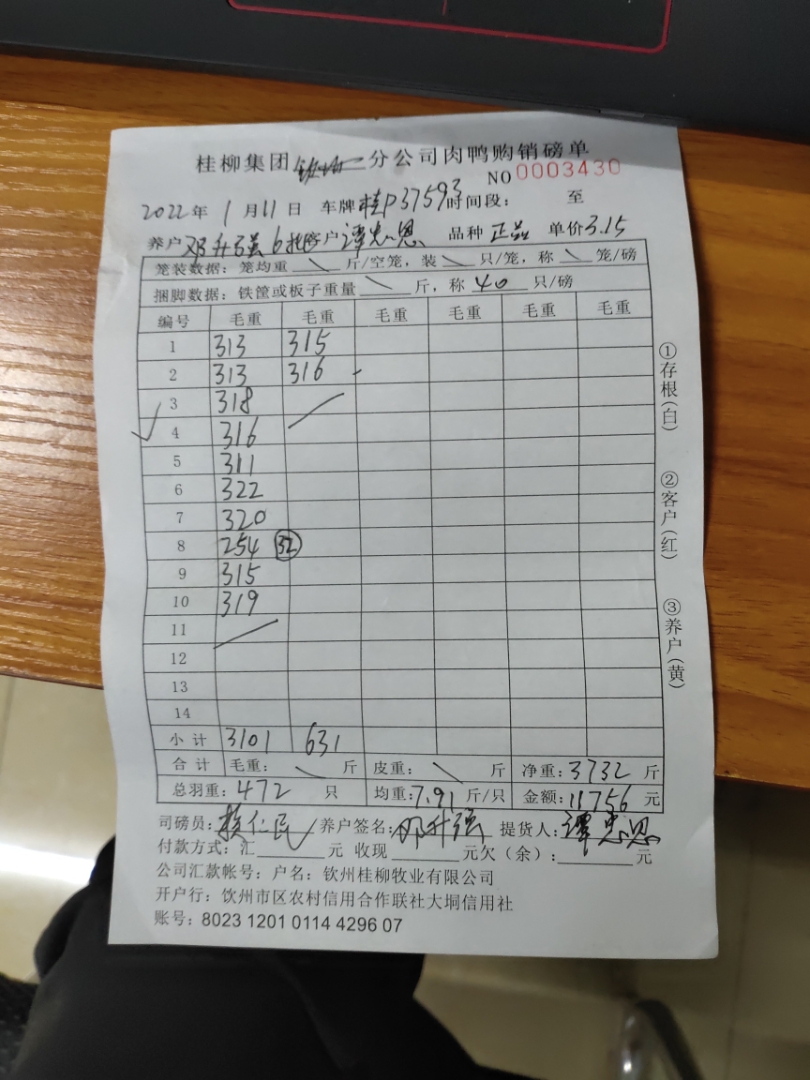 桂柳集团 分公司肉鸭购销磅单
NO 0003430
2022年 1月11日 车牌桂P37593时间段： 至
养户邓升强6批客户谭忠恩 品种 正品 单价3.15
笼装数据：笼均重 \ 斤/空笼，装 \ 只/笼，称 \ 笼/磅
捆脚数据：铁筐或板子重量 \ 斤，称 40 只/磅
编号 毛重 毛重 毛重 毛重 毛重 毛重
1 313 315
2 313 316
3 318
4 316
5 311
6 322
7 320
8 254 32
9 315
10 319
11
12
13
14
小计 3101 631
合计 毛重： \ 斤 皮重： \ 斤 净重：3732 斤
总羽重：472 只 均重：7.91 斤/只 金额：11756 元
司磅员： 养户签名：邓升强 提货人：谭忠恩
付款方式：汇 元 收现 元欠（余）： 元
公司汇款帐号：户名：钦州桂柳牧业有限公司
开户行：钦州市区农村信用合作联社大垌信用社
账号：8023 1201 0114 4296 07
①存根（白）
②客户（红）
③养户（黄）